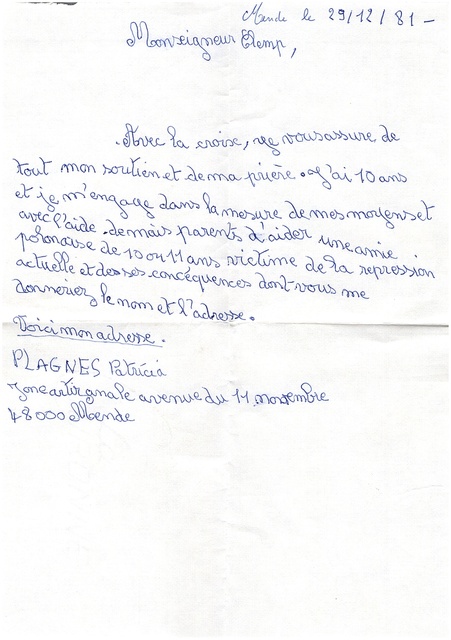 Mende le 29/12/81-
Monseigneur Glemp,
Avec la croix, je vous assure de
tout mon soutien et de ma prière. J'ai 10 ans
et je m'engage dans la mesure de mes moyens et
avec l'aide de mais parents d'aider une amie
polonaise de 10 ou 11 ans victime de la repression
actuelle et de ses concéquences dont vous me
donneriez le nom et l'adresse.
Voici mon adresse.
PLAGNES Patricia
Zone artirgnale avenue du 11 novembre
48000 Mende